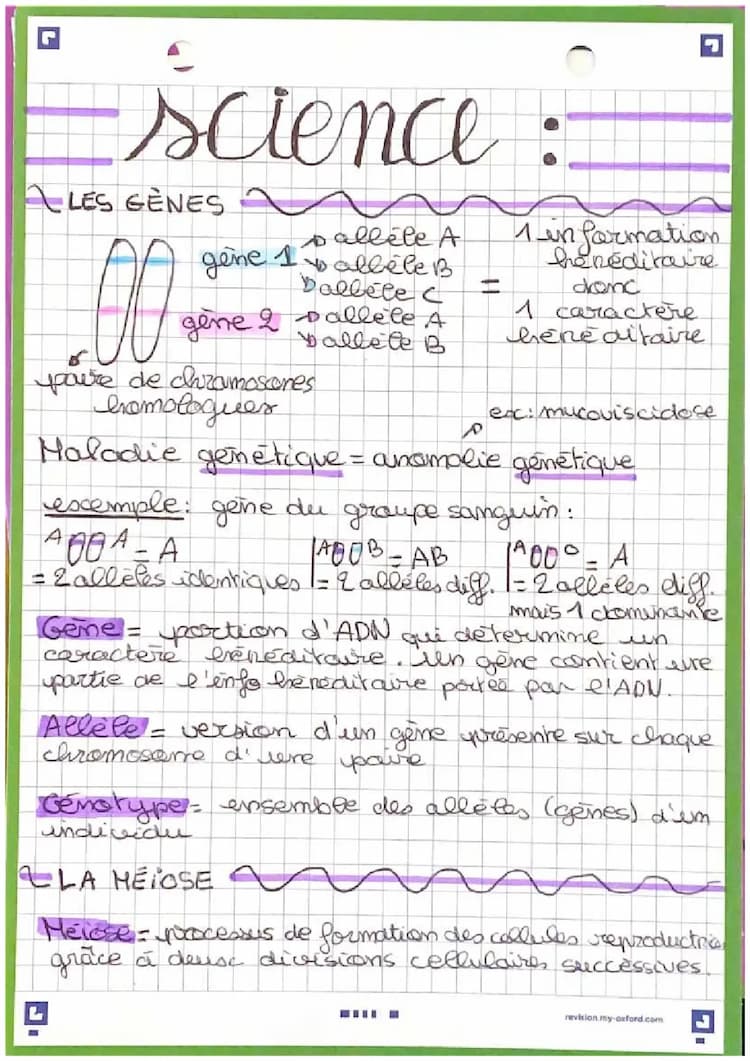 science :
LES GÈNES
gène 1 allèle A
allèle B
allèle C
gène 2 allèle A
allèle B
= 1 information
héréditaire
donc
1 caractère
héréditaire
paire de chromosomes
homologues
ex: mucoviscidose
Maladie génétique = anomalie génétique
exemple: gène du groupe sanguin:
A A = A
= 2 allèles identiques
A B = AB
= 2 allèles diff.
A O = A
= 2 allèles diff.
mais 1 dominante
Gène = portion d'ADN qui détermine un
caractère héréditaire. Un gène contient une
partie de l'info héréditaire portée par l'ADN.
Allèle = version d'un gène présente sur chaque
chromosome d'une paire
Génotype = ensemble des allèles (gènes) d'un
individu
LA MÉIOSE
Méiose = processus de formation des cellules reproductrices
grâce à deux divisions cellulaires successives.
revision.my-oxford.com